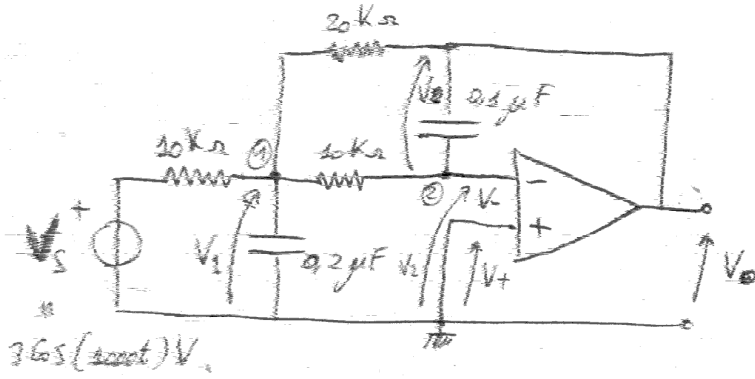 20KΩ
V0
0,1μF
10KΩ
①
10KΩ
②
V-
-
+
+
Vs
V1
0,2μF
V2
V+
V0
=
3Cos(1000t)V